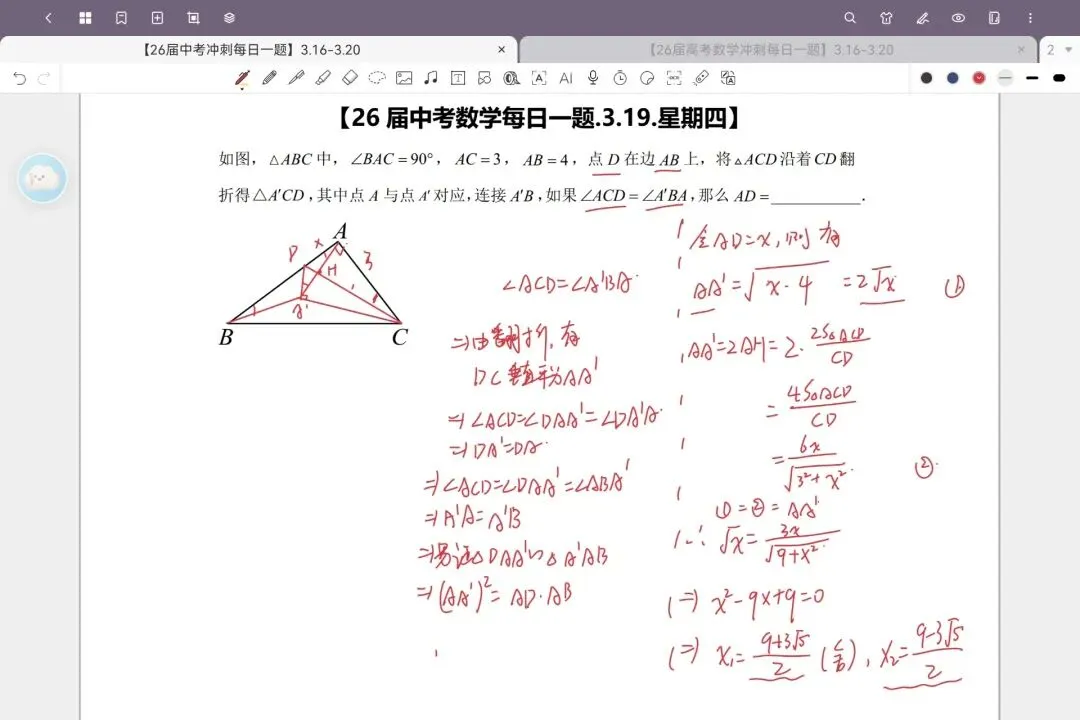 【26届中考冲刺每日一题】3.16-3.20
×
【26届高考数学冲刺每日一题】3.16-3.20
×
2
【26 届中考数学每日一题.3.19.星期四】
如图，△ABC 中，∠BAC = 90°，AC = 3，AB = 4，点 D 在边 AB 上，将 △ACD 沿着 CD 翻
折得 △A′CD，其中点 A 与点 A′ 对应，连接 A′B，如果 ∠ACD = ∠A′BA，那么 AD = ________.
A
D
x
3
H
A'
B
C
∠ACD=∠A'BA
⇒由翻折，有
DC垂直平分AA'
⇒∠ACD=∠DAA'=∠DA'A
⇒DA'=DA
⇒∠ACD=∠DAA'=∠ABA'
⇒A'A=A'B
⇒易证△DAA'∽△A'AB
⇒(AA')²=AD·AB
令AD=x，则有
AA'=√(x·4)=2√x ①
AA'=2AH=2·2S△ACD/CD
=4S△ACD/CD
=6x/√(3²+x²) ②
①=②=AA'
∴√x=3x/√(9+x²)
⇒x²-9x+9=0
⇒x₁=(9+3√5)/2(舍)，x₂=(9-3√5)/2